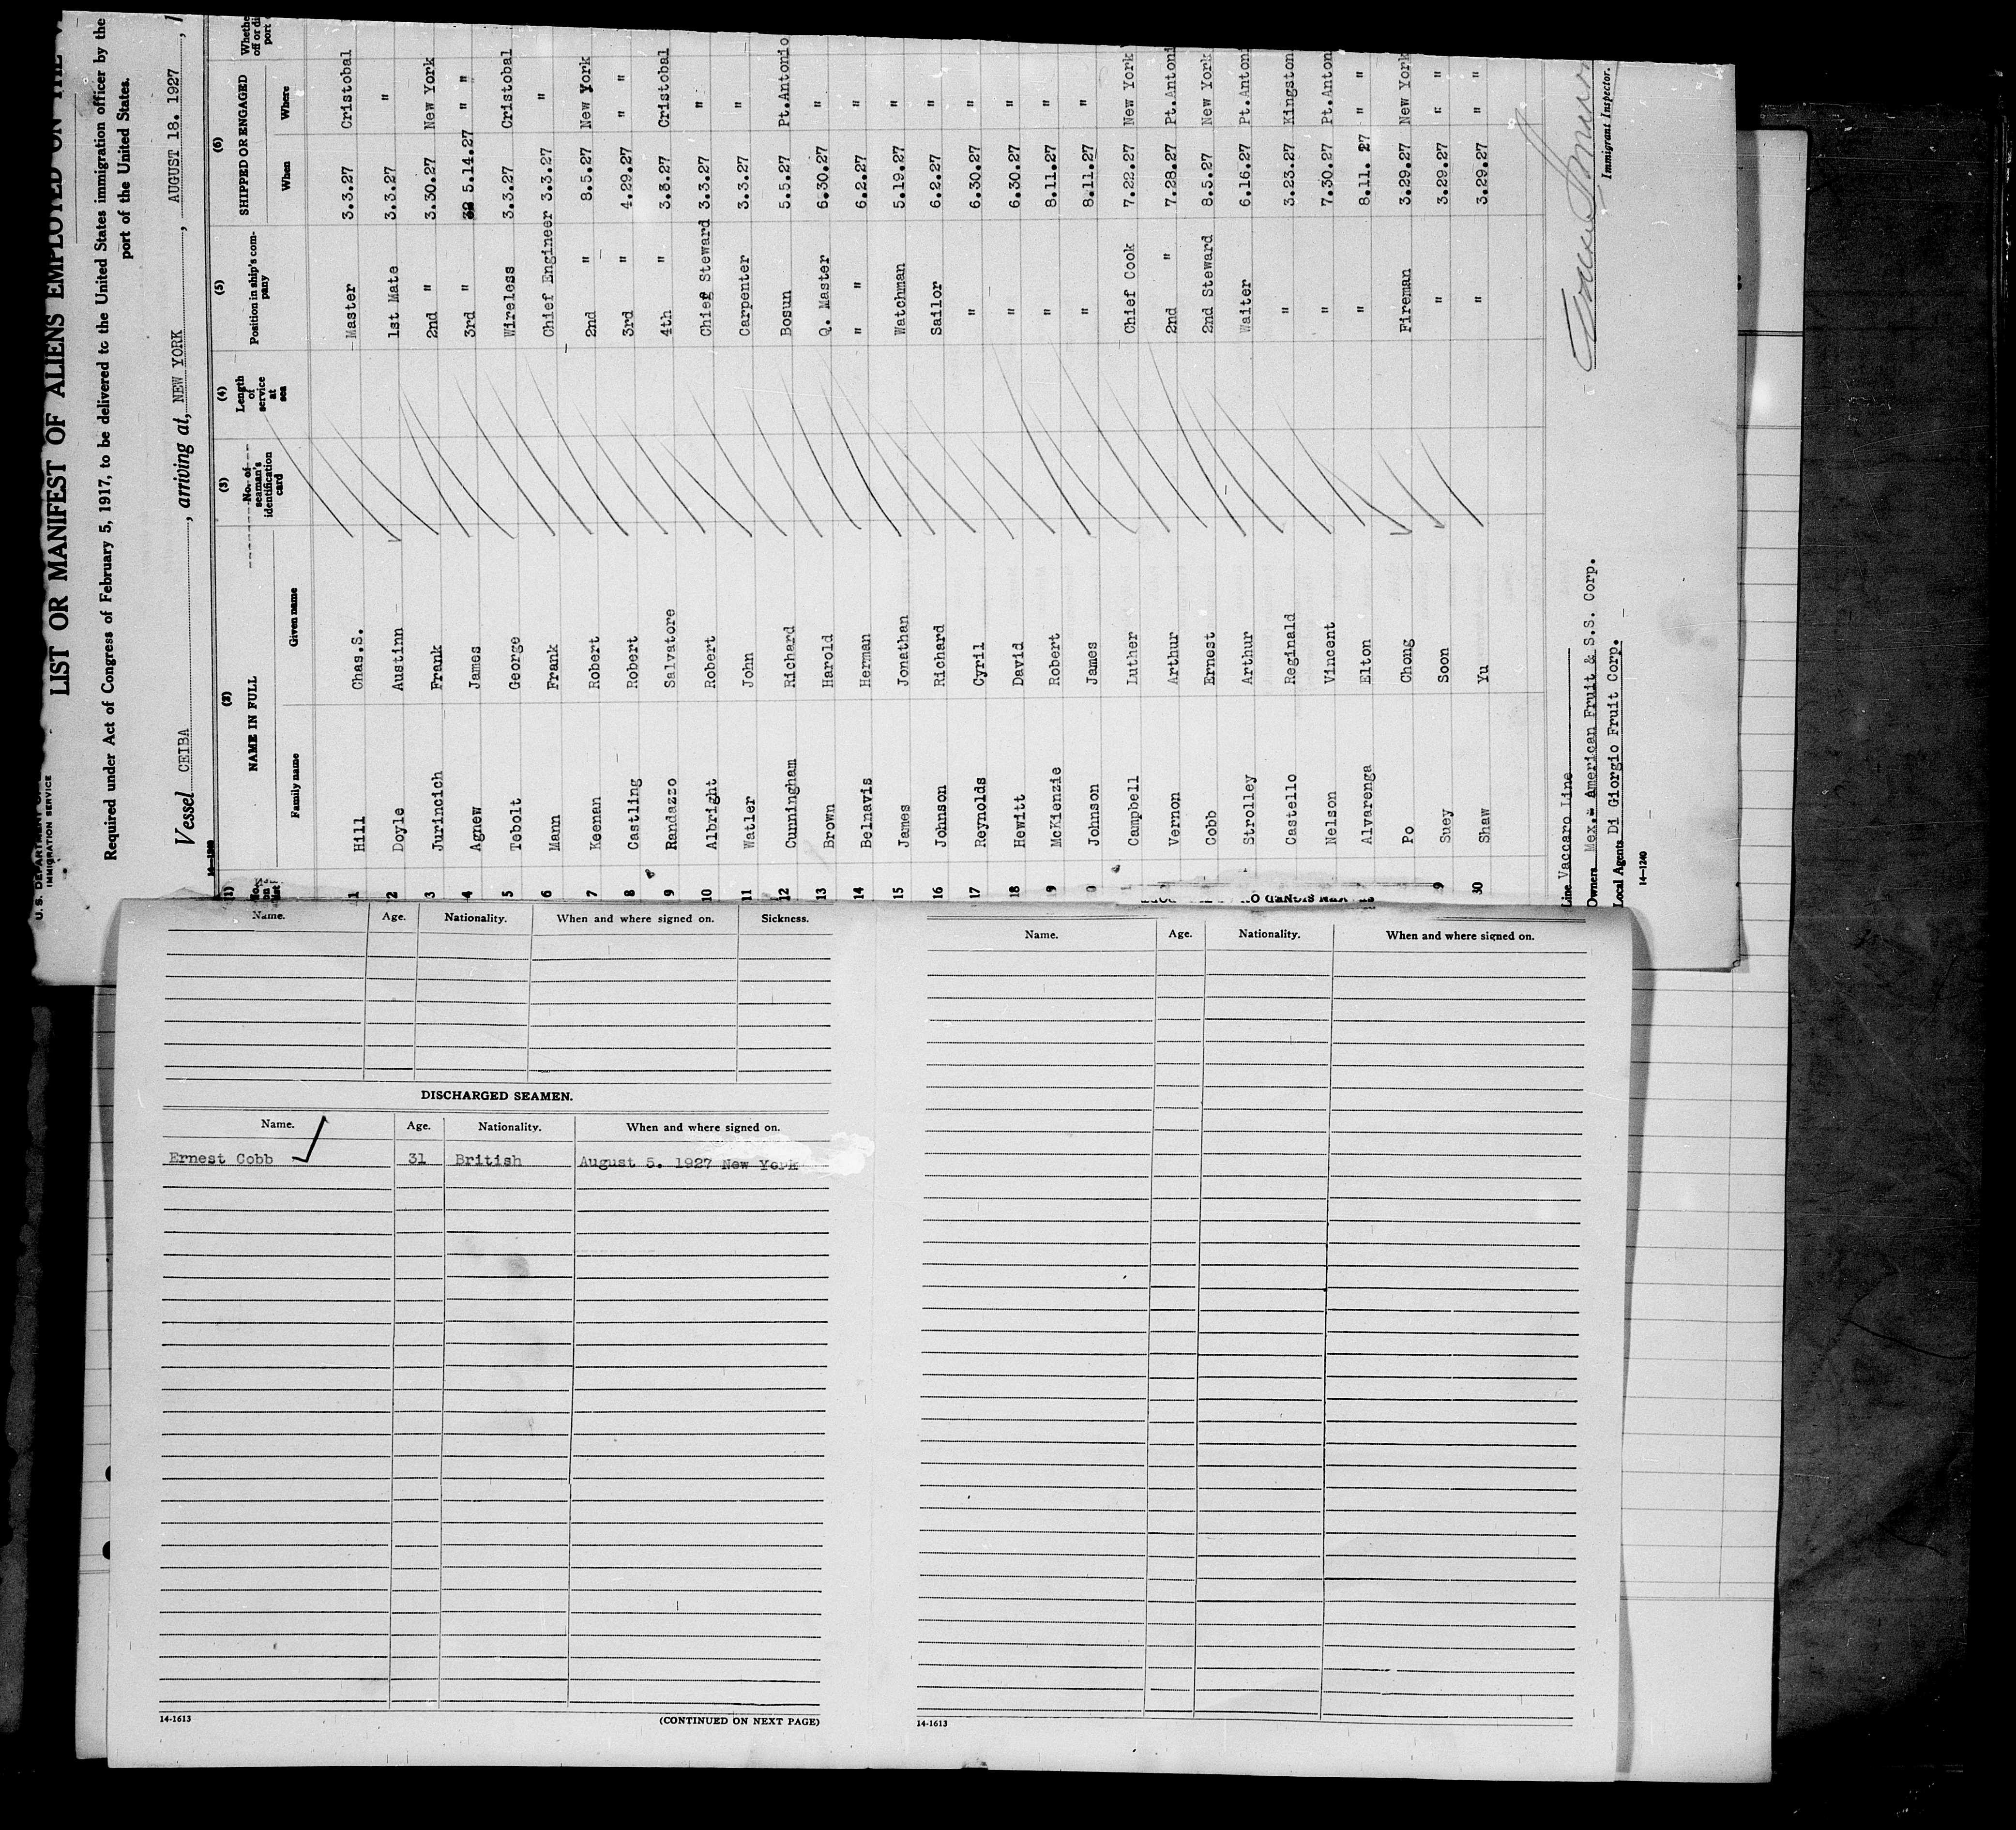 U. S. DEPARTMENT OF
IMMIGRATION SERVICE
LIST OR MANIFEST OF ALIENS EMPLOYED ON THE
Required under Act of Congress of February 5, 1917, to be delivered to the United States immigration officer by the
port of the United States.
Vessel CEIBA, arriving at, NEW YORK, AUGUST 18. 1927,
(1) (2) (3) (4) (5) (6)
NAME IN FULL No. of seaman's identification card Length of service at sea Position in ship's company SHIPPED OR ENGAGED
Family name Given name When Where
1 Hill Chas.S. Master 3.3.27 Cristobal
2 Doyle Austinn 1st Mate 3.3.27 "
3 Jurincich Frank 2nd " 3.30.27 New York
4 Agnew James 3rd " 5.14.27 " "
5 Tebolt George Wireless 3.3.27 Cristobal
6 Mann Frank Chief Engineer 3.3.27 "
7 Keenan Robert 2nd " 8.5.27 New York
8 Castling Robert 3rd " 4.29.27 " "
9 Randazzo Salvatore 4th " 3.3.27 Cristobal
10 Albright Robert Chief Steward 3.3.27 "
11 Watler John Carpenter 3.3.27 "
12 Cunningham Richard Bosun 5.5.27 Pt.Antonio
13 Brown Harold Q. Master 6.30.27 "
14 Belnavis Herman " 6.2.27 "
15 James Jonathan Watchman 5.19.27 "
16 Johnson Richard Sailor 6.2.27 "
17 Reynolds Cyril " 6.30.27 "
18 Hewitt David " 6.30.27 "
9 McKienzie Robert " 8.11.27 "
0 Johnson James " 8.11.27 "
Campbell Luther Chief Cook 7.22.27 New York
Vernon Arthur 2nd " 7.28.27 Pt.Antoni
Cobb Ernest 2nd Steward 8.5.27 New York
Strolley Arthur Waiter 6.16.27 Pt.Antoni
Castello Reginald " 3.23.27 Kingston
Nelson Vincent " 7.30.27 Pt.Anton
Alvarenga Elton " 8.11. 27 " "
Po Chong Fireman 3.29.27 New York
9 Suey Soon " 3.29.27 " "
30 Shaw Yu " 3.29.27 " "
Line Vaccaro Line
Owners Mex.& American Fruit & S.S. Corp.
Local Agents Di Giorgio Fruit Corp.
Immigrant Inspector.
14-1240
Name. Age. Nationality. When and where signed on. Sickness.
DISCHARGED SEAMEN.
Name. Age. Nationality. When and where signed on.
Ernest Cobb 31 British August 5. 1927 New York
14-1613 (CONTINUED ON NEXT PAGE)
Name. Age. Nationality. When and where signed on.
14-1613